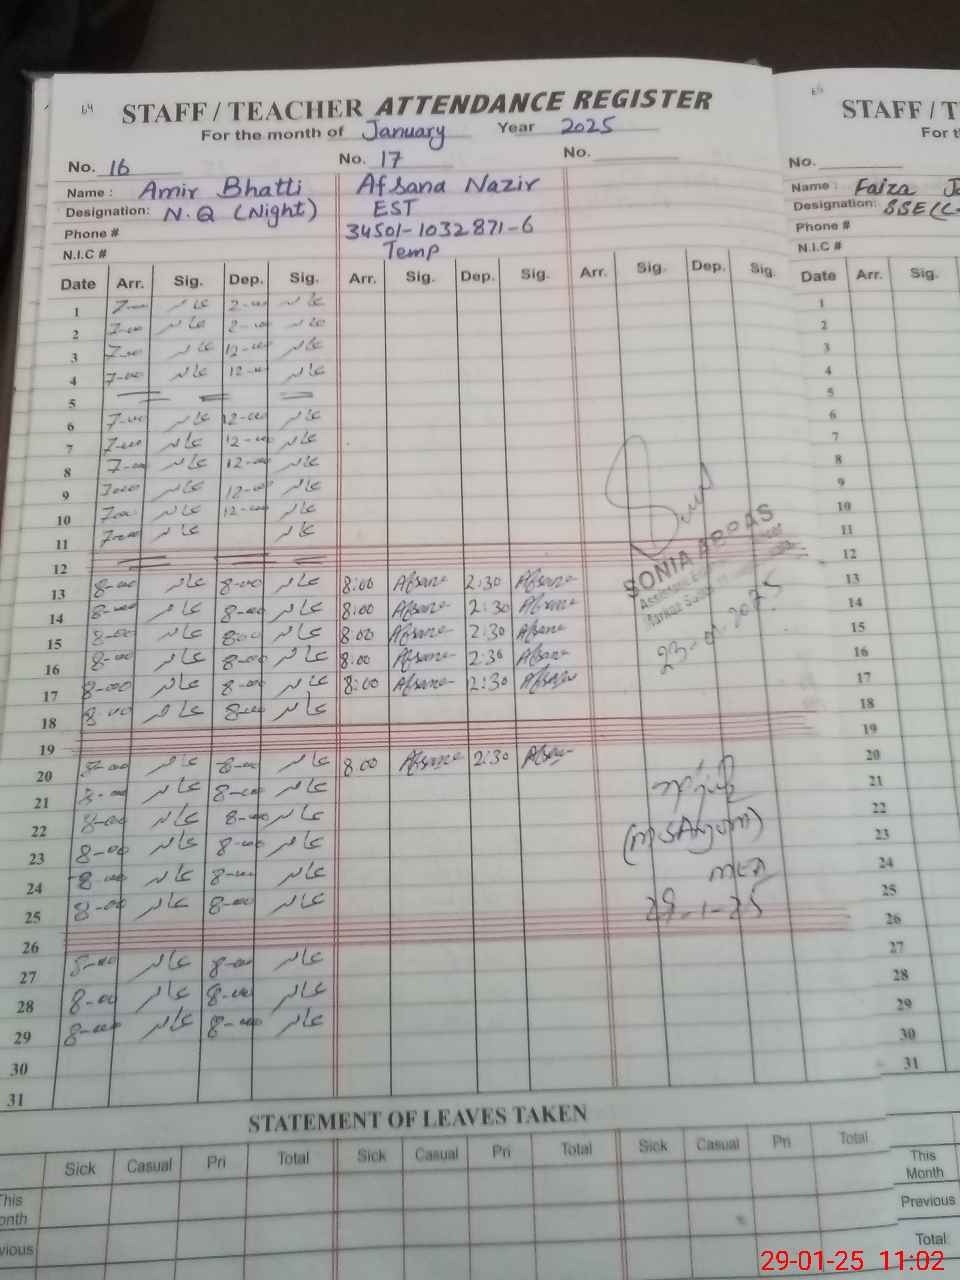 64
STAFF / TEACHER ATTENDANCE REGISTER
For the month of January Year 2025
No. 16 No. 17 No.
Name : Amir Bhatti Afsana Nazir
Designation: N.Q (Night) EST
Phone # 34501-1032871-6
N.I.C # Temp
Date Arr. Sig. Dep. Sig. Arr. Sig. Dep. Sig. Arr. Sig. Dep. Sig.
1 7-00 عامر 2-00 عامر
2 7-00 عامر 2-00 عامر
3 7-00 عامر 12-00 عامر
4 7-00 عامر 12-00 عامر
5
6 7-00 عامر 12-00 عامر
7 7-00 عامر 12-00 عامر
8 7-00 عامر 12-00 عامر
9 7-00 عامر 12-00 عامر
10 7-00 عامر 12-00 عامر
11 7-00 عامر عامر
12
13 8-00 عامر 8-00 عامر 8:00 Afsana 2:30 Afsana
14 8-00 عامر 8-00 عامر 8:00 Afsana 2:30 Afsana
15 8-00 عامر 8-00 عامر 8:00 Afsana 2:30 Afsana
16 8-00 عامر 8-00 عامر 8:00 Afsana 2:30 Afsana
17 8-00 عامر 8-00 عامر 8:00 Afsana 2:30 Afsana
18 8-00 عامر 8-00 عامر
19
20 8-00 عامر 8-00 عامر 8:00 Afsana 2:30 Afsana
21 8-00 عامر 8-00 عامر
22 8-00 عامر 8-00 عامر
23 8-00 عامر 8-00 عامر
24 8-00 عامر 8-00 عامر
25 8-00 عامر 8-00 عامر
26
27 8-00 عامر 8-00 عامر
28 8-00 عامر 8-00 عامر
29 8-00 عامر 8-00 عامر
30
31
SONIA ABBAS
23-01-2025
(M S Anjum)
MEA
29-1-25
STATEMENT OF LEAVES TAKEN
Sick Casual Pri Total Sick Casual Pri Total Sick Casual Pri Total
This
onth
vious
STAFF / T
For t
No.
Name : Faiza
Designation:
Phone #
N.I.C #
Date Arr. Sig.
1
2
3
4
5
6
7
8
9
10
11
12
13
14
15
16
17
18
19
20
21
22
23
24
25
26
27
28
29
30
31
This
Month
Previous
Total
29-01-25 11:02